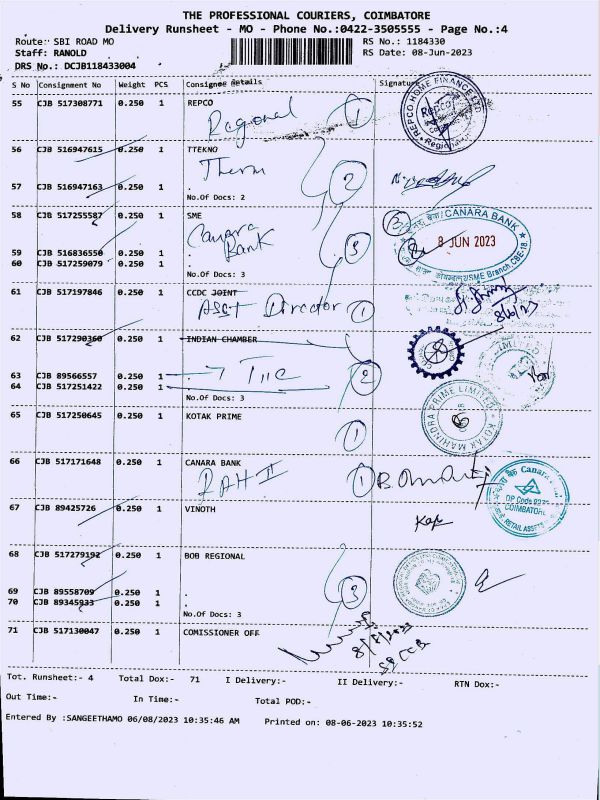 THE PROFESSIONAL COURIERS, COIMBATORE
Delivery Runsheet - MO - Phone No.:0422-3505555 - Page No.:4
Route:- SBI ROAD MO RS No.: 1184330
Staff: RANOLD RS Date: 08-Jun-2023
DRS No.: DCJB118433004
S No Consignment No Weight PCS Consignee details Signature
55 CJB 517308771 0.250 1 REPCO
Regional 1
REPCO HOME FINANCE LTD
Repco
56 CJB 516947615 0.250 1 TTEKNO
Therm
57 CJB 516947163 0.250 1 . 2
No.Of Docs: 2
58 CJB 517255587 0.250 1 SME 3
Canara
Bank 3
CANARA BANK
8 JUN 2023
SME Branch CBE-18
59 CJB 516836550 0.250 1 .
60 CJB 517259079 0.250 1 .
No.Of Docs: 3
61 CJB 517197846 0.250 1 CCDC JOINT
Asst Director 1
8/6/23
62 CJB 517290360 0.250 1 INDIAN CHAMBER
63 CJB 89566557 0.250 1 .
64 CJB 517251422 0.250 1 . 2
No.Of Docs: 3
65 CJB 517250645 0.250 1 KOTAK PRIME
1
KOTAK MAHINDRA PRIME LIMITED
66 CJB 517171648 0.250 1 CANARA BANK
RAH II 1
Canara
DP Code
COIMBATORE
RETAIL ASSETS
67 CJB 89425726 0.250 1 VINOTH
68 CJB 517279192 0.250 1 BOB REGIONAL
69 CJB 89558709 0.250 1 .
70 CJB 89345933 0.250 1 . 3
No.Of Docs: 3
71 CJB 517130047 0.250 1 COMISSIONER OFF
Tot. Runsheet:- 4 Total Dox:- 71 I Delivery:- II Delivery:- RTN Dox:-
Out Time:- In Time:- Total POD:-
Entered By :SANGEETHAMO 06/08/2023 10:35:46 AM Printed on: 08-06-2023 10:35:52